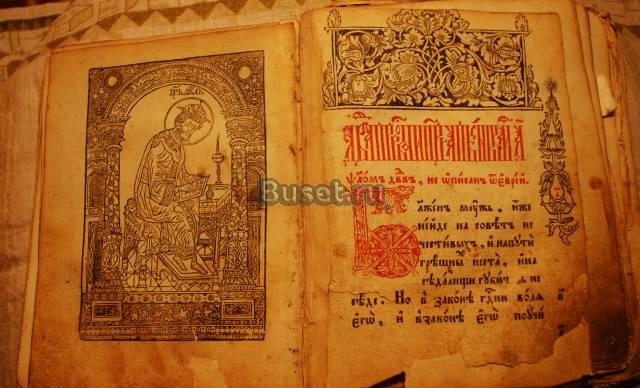 Buset.ru
Ѱаломъ дв҃дъ, не ѡписан ѿ еврей.
Блаженъ мꙋжъ, иже
не иде на совѣтъ не
честивыхъ, и на пꙋти
грѣшныⷯ не ста, и на
сѣдалищи гꙋбит҃ не
сѣде. Но в законѣ гд҃ни волѧ
егѡ, и в законѣ егѡ поꙋчи